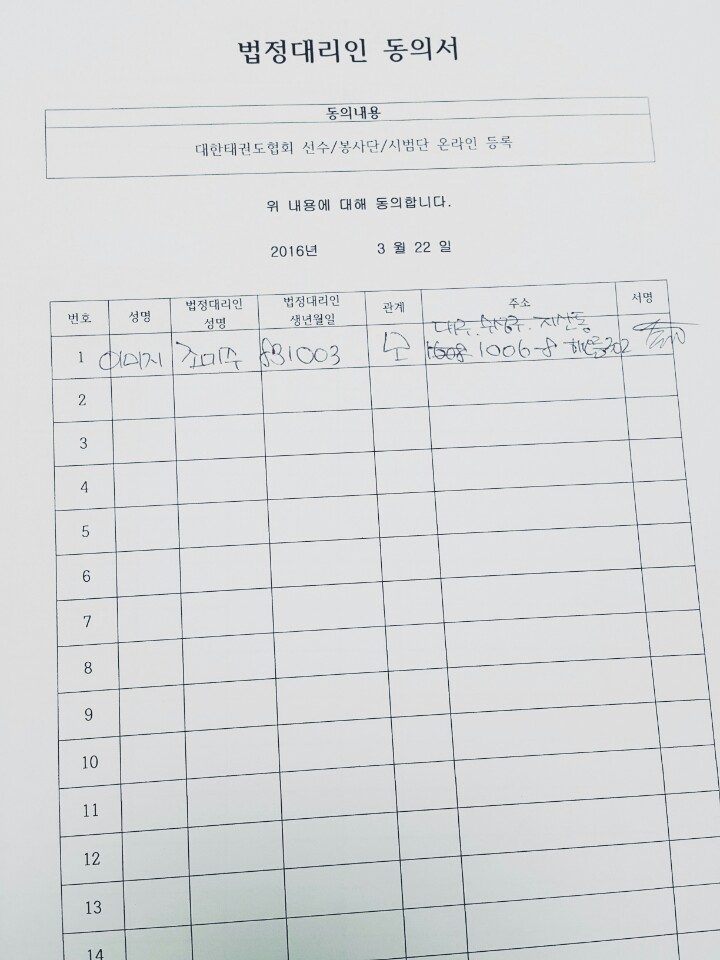 법정대리인 동의서
동의내용
대한태권도협회 선수/봉사단/시범단 온라인 등록
위 내용에 대해 동의합니다.
2016년 3 월 22 일
번호 성명 법정대리인 성명 법정대리인 생년월일 관계 주소 서명
1 이미지 조미수 831003 모 수성구. 지산동
1006-8 302
2
3
4
5
6
7
8
9
10
11
12
13
14